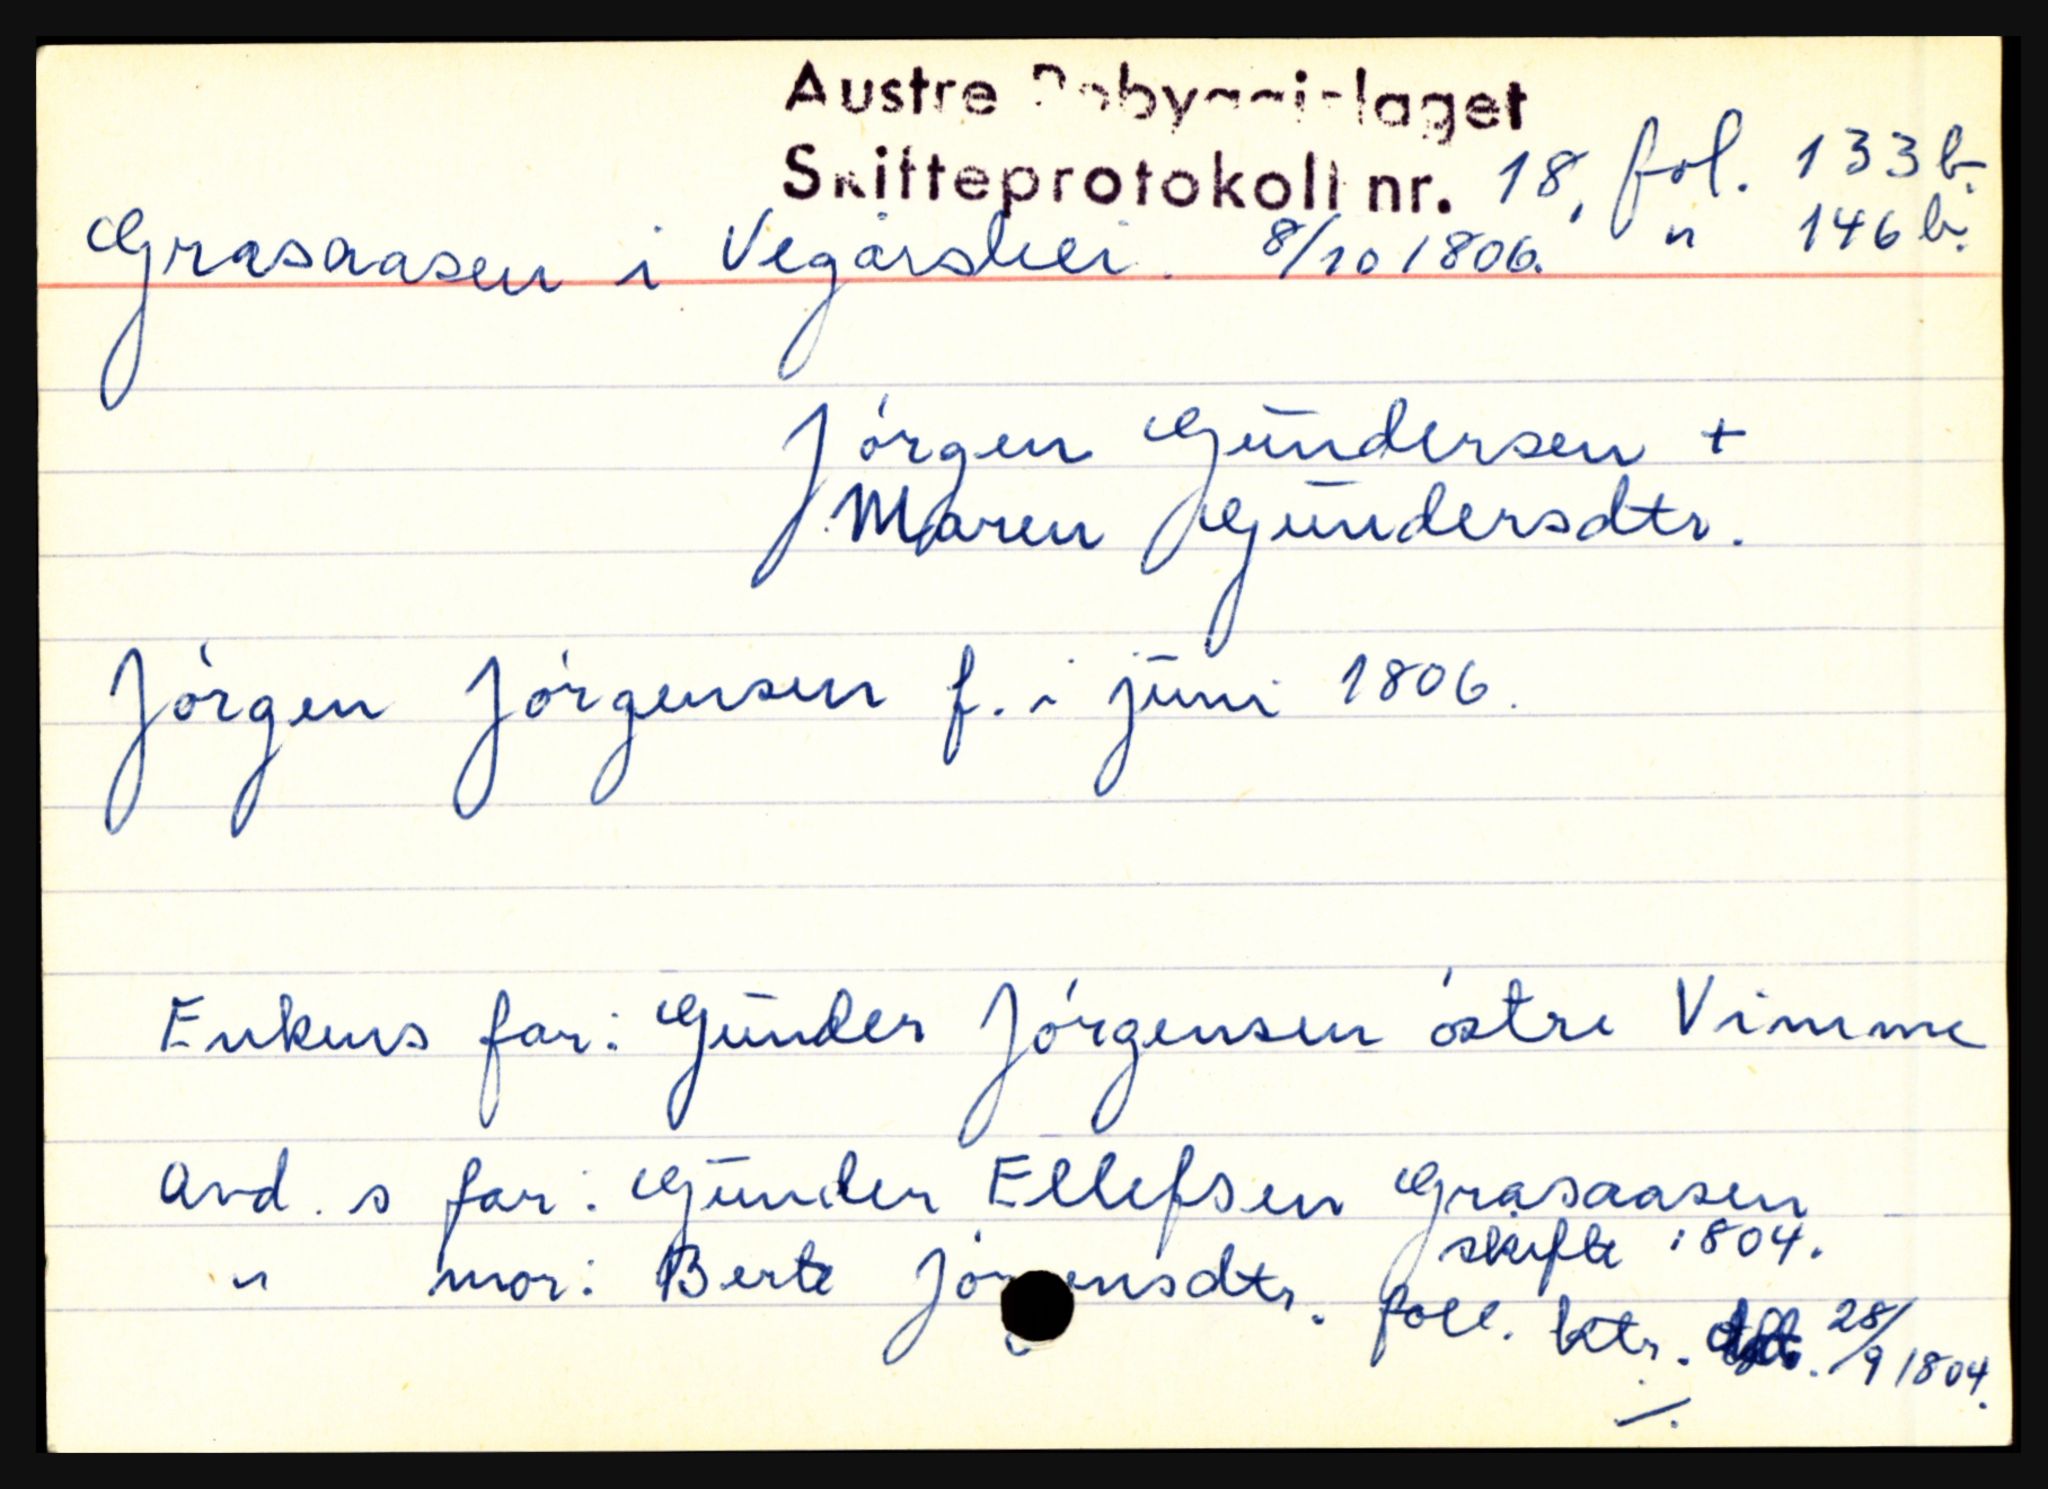 Austre Robyggjelaget
Skifteprotokoll nr. 18, fol. 133 b.
Grasaasen i Vegårshei. 8/10 1806. " 146 b.
Jørgen Gundersen +
Maren Gundersdtr.
Jørgen Jørgensen f. i juni 1806.
Enkens far: Gunder Jørgensen østre Vimme
Avd. s far: Gunder Ellefsen Grasaasen
skifte 1804.
" mor: Berte Jørgensdtr. foll. ktr. 28/9 1804.